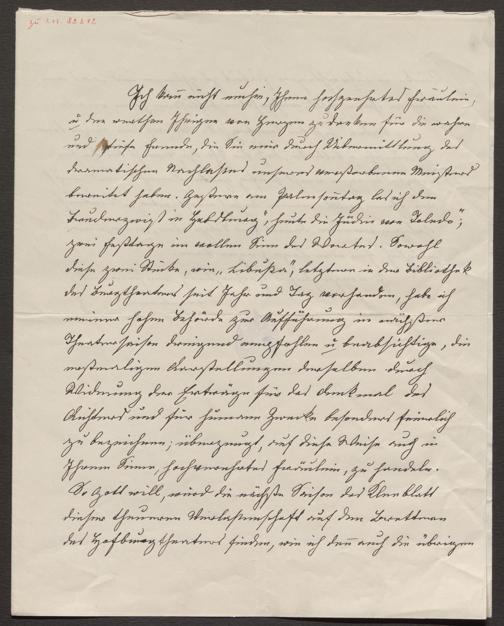 Ich kann nicht umhin, Ihnen hochgeehrtes Fräulein,
u den werthen Ihrigen von Herzen zu danken für die wahre
und tiefe Freude, die Sie mir durch Uebermittlung des
dramatischen Nachlasses unseres verstorbenen Meisters
bereitet haben. Gestern am Palmsonntag las ich den
Bruderzwist in Habsburg", heute die Jüdin von Toledo";
zwei Festtage im vollen Sinn des Wortes. Sowohl
diese zwei Stücke, wie „Libussa", letztere in der Bibliothek
des Burgtheaters seit Jahr und Tag vorhanden, habe ich
meiner hohen Behörde zur Aufführung in nächster
Theatersaison dringend empfohlen u beabsichtige, die
erstmaligen Vorstellungen derselben durch
Widmung der Erträge für das Denkmal des
Dichters und für humane Zwecke besonders feierlich
zu bezeichnen; überzeugt, auf diese Weise auch in
Ihrem Sinne, hochverehrtes Fräulein, zu handeln.
So Gott will, wird die nächste Saison das
dieser theueren Verlassenschaft auf den Brettern
des Hofburgtheaters finden, wie ich denn auch die übrigen